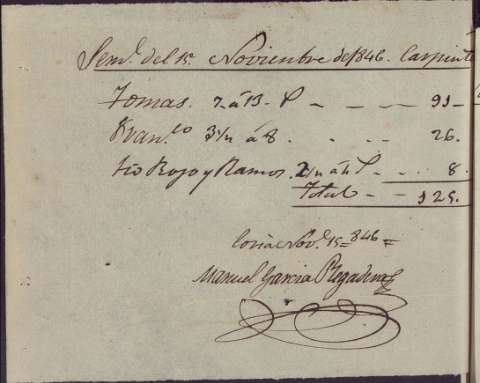 Sem.ª del 15 Noviembre de 1846. Carpinte
Tomas. 7 á 13 - - - 91 -
Fran.co 3½ á 8 - - - 26.
tio Rojo y Ramos. 2 á 4 - - 8.
Total - - 125.
Coria Nov.e 15 = 846 =
Manuel Garcia